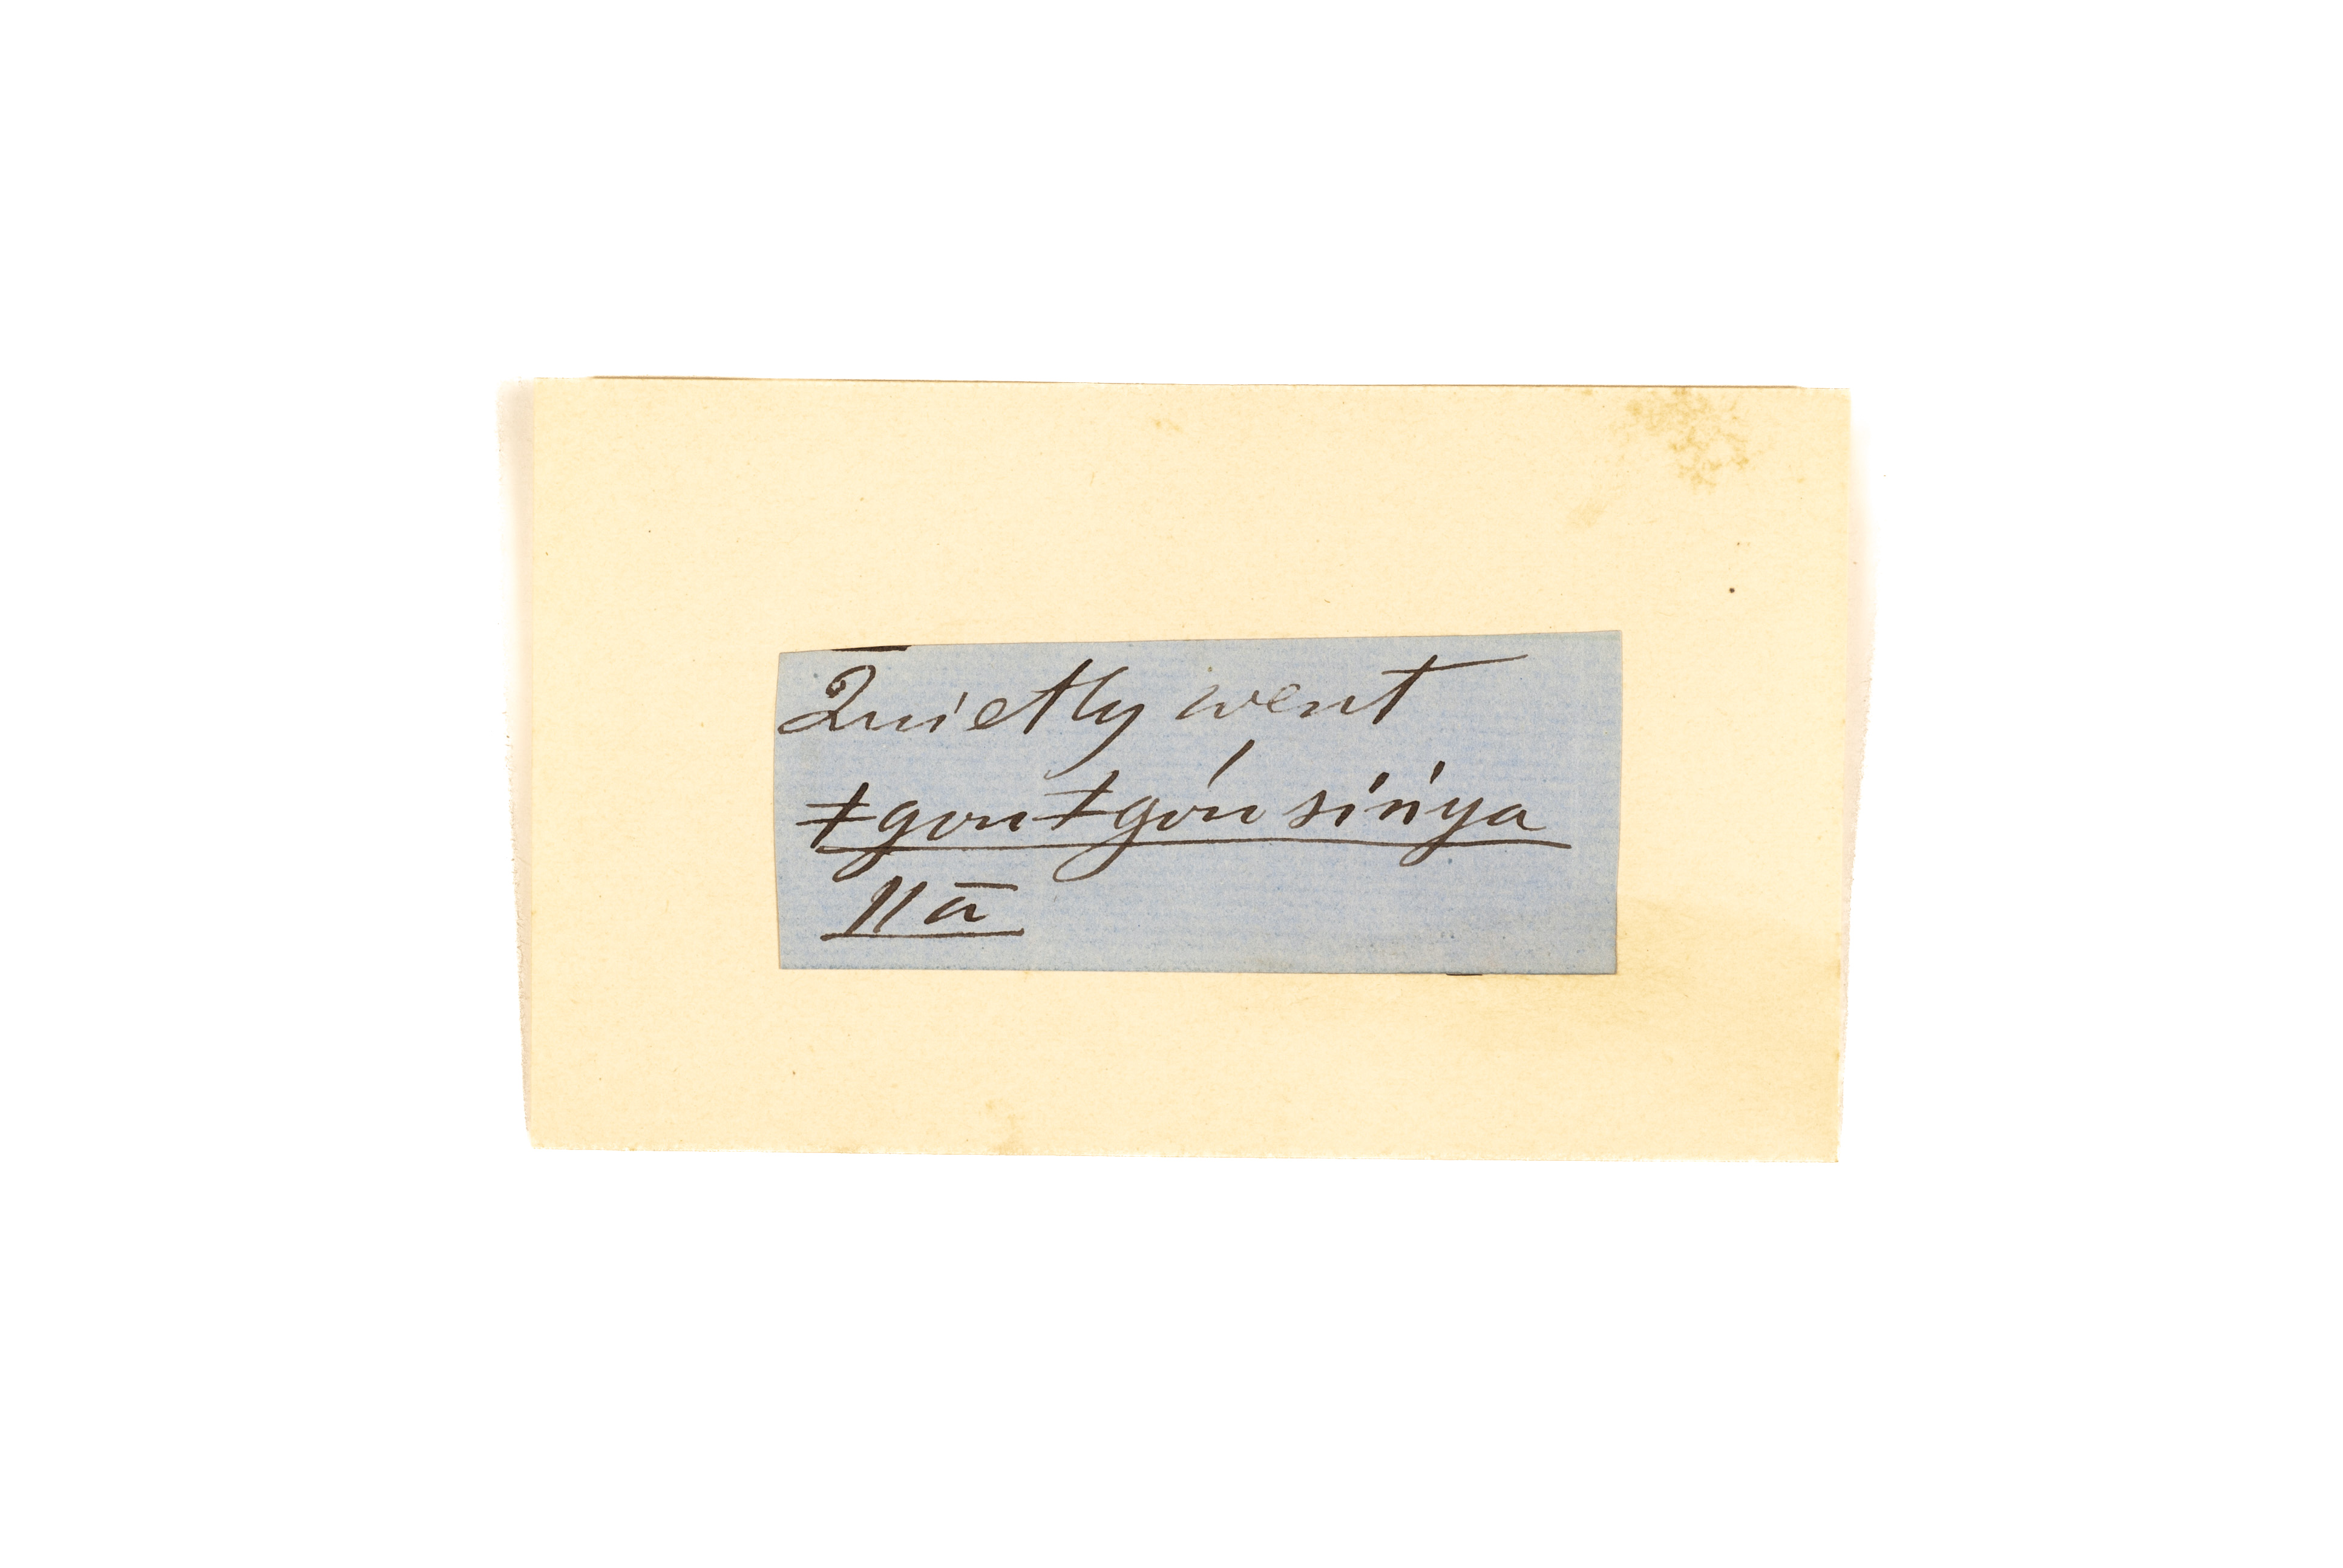 Quietly went
ǂgouǂgóu síńya
ǁā